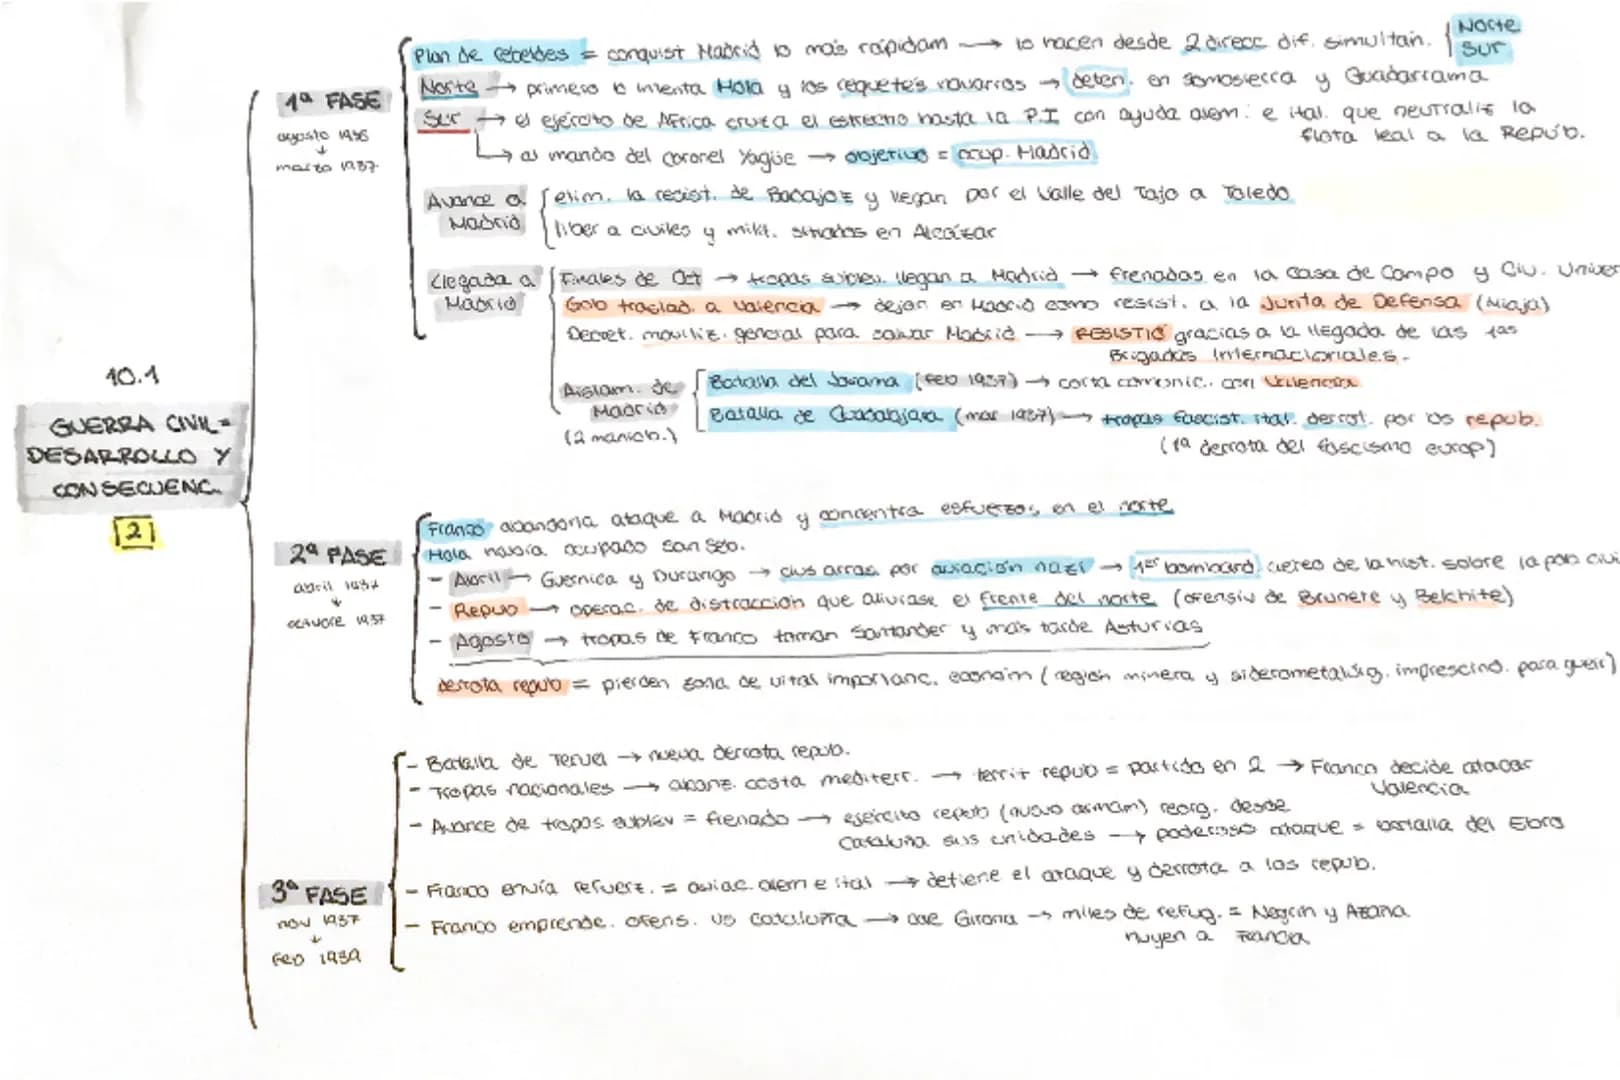 10.1
GUERRA CIVIL =
DESARROLLO Y
CONSECUENC.
[2]
1ª FASE
agosto 1936
↓
marzo 1937
Plan de rebeldes = conquist Madrid lo más rápidam → lo hacen desde 2 direcc dif. simultán. { Norte
Sur
Norte → primero lo intenta Mola y los requetés navarros → deten. en Somosierra y Guadarrama
Sur → el ejército de África cruza el estrecho hasta la P.I con ayuda alem. e ital. que neutraliz la
flota leal a la Repúb.
↳ al mando del coronel Yagüe → objetivo = ocup. Madrid
Avance a
Madrid
elim. la resist. de Badajoz y llegan por el Valle del Tajo a Toledo
liber a civiles y milit. sitiados en Alcázar
Llegada a
Madrid
Finales de Oct → tropas sublev. llegan a Madrid → frenadas en la Casa de Campo y Ciu. Univer
Gob traslad. a Valencia → dejan en Madrid como resist. a la Junta de Defensa (Miaja)
Decret. moviliz. general para salvar Madrid → RESISTIÓ gracias a la llegada de las 1as
Brigadas Internacionales.
Aislam. de
Madrid
(2 maniob.)
Batalla del Jarama (feb 1937) → corta comunic. con Valencia
Batalla de Guadalajara (mar 1937) → tropas fascist. ital. derrot. por los repub.
(1ª derrota del fascismo europ)
2ª FASE
abril 1937
↓
octubre 1937
Franco abandona ataque a Madrid y concentra esfuerzos en el norte
Mola había ocupado San Seb.
- Abril → Guernica y Durango → cius arras. por aviación nazi → 1er bombard. aéreo de la hist. sobre la pob civi
- Repub → operac. de distracción que aliviase el frente del norte (ofensiv de Brunete y Belchite)
- Agosto → tropas de Franco toman Santander y más tarde Asturias
derrota repub = pierden zona de vital importanc. económ (región minera y siderometalúrg. imprescind. para guerr)
3ª FASE
nov 1937
↓
feb 1939
- Batalla de Teruel → nueva derrota repub.
- Tropas nacionales → alcanz. costa mediterr. → territ repub = partido en 2 → Franco decide atacar
Valencia
- Avance de tropas sublev = frenado → ejército repub (nuevo armam) reorg. desde
Cataluña sus unidades → poderoso ataque = batalla del Ebro
- Franco envía refuerz. = aviac. alem e ital → detiene el ataque y derrota a los repub.
- Franco emprende. ofens. vs Cataluña → cae Girona → miles de refug. = Negrín y Azaña
huyen a Francia